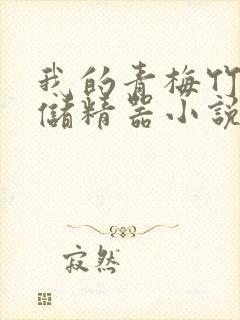 我的青梅竹
儲精器小說
寂然